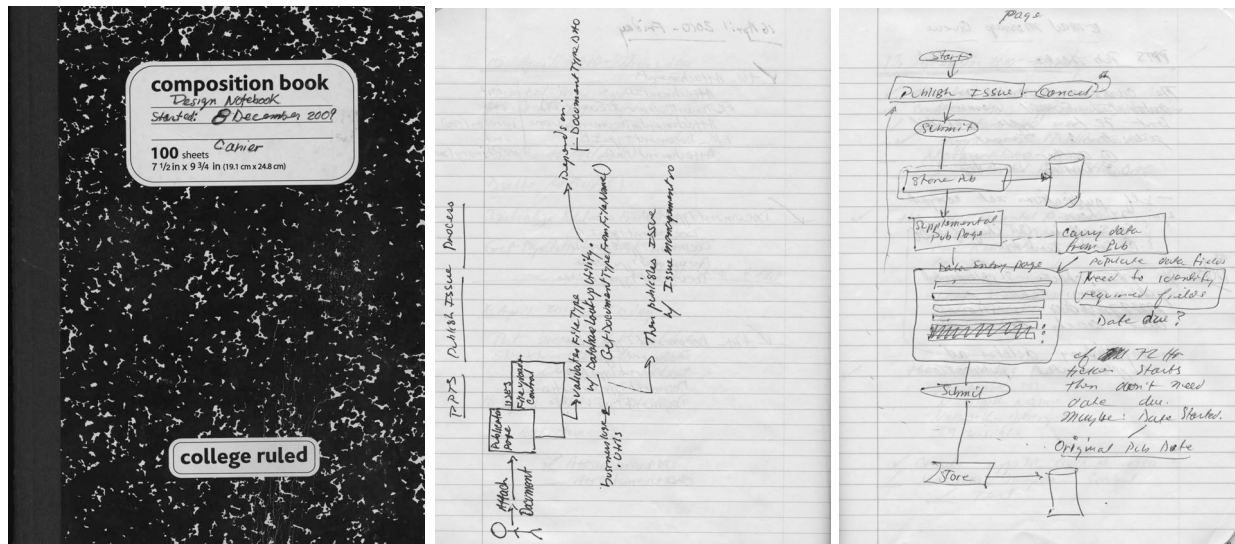 composition book
Design Notebook
Started: 8 December 2009
Canier
100 sheets
7 1/2 in x 9 3/4 in (19.1 cm x 24.8 cm)
college ruled
PPTS Publish Issue Process
Attach
Document
Publication
Page
uses
File upload
Control
validates File Type
w/ Database Lookup Utility.
GetDocumentTypeFromFileName()
Depends on:
DocumentType
business
.Utils
Then publishes Issue
w/ Issue management
16 April 2010 - Friday
Page
Start
Publish Issue
Cancel
Submit
Store Pub
Supplemental
Pub Page
Carry data
from Pub
Data Entry page
Populate data fields
Need to identify
required fields
Date due?
if 72 Hr
ticker starts
then don't need
date due.
Maybe: Date Started.
Submit
Original Pub Date
Store